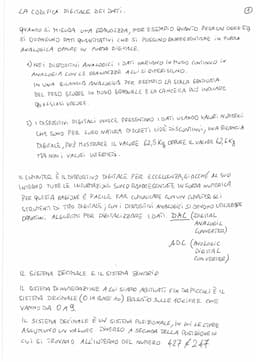 LA CODIFICA DIGITALE DEI DATI:
①
QUANDO SI MISURA UNA GRANDEZZA, PER ESEMPIO QUANTO PESA UN OGGETTO
SI OTTENGONO DATI QUANTITATIVI CHE SI POSSONO RAPPRESENTARE IN FORMA
ANALOGICA OPPURE IN FORMA DIGITALE.
1) NEI DISPOSITIVI ANALOGICI I DATI VARIANO IN MODO CONTINUO IN
ANALOGIA CON LE GRANDEZZE ALLE SI RIFERISCONO.
IN UNA BILANCIA ANALOGICA PER ESEMPIO LA SCALA GRADUATA
DEL PESO SCORRE IN MODO GRADUALE E LA LANCETTA PUÒ INDICARE
QUALSIASI VALORE.
2) I DISPOSITIVI DIGITALI INVECE PRESENTANO I DATI USANDO VALORI NUMERICI
CHE SONO PER LORO NATURA DISCRETI CIOÈ DISCONTINUI, UNA BILANCIA
DIGITALE, PUÒ MOSTRARE IL VALORE 62,5 Kg OPPURE IL VALORE 62,6 Kg
MA NON I VALORI INTERMEDI.
IL COMPUTER È IL DISPOSITIVO DIGITALE PER ECCELLENZA, GIACCHÉ AL SUO
INTERNO TUTTE LE INFORMAZIONI SONO RAPPRESENTATE IN FORMA NUMERICA
PER QUESTA RAGIONE È FACILE FAR COMUNICARE COMUNI COMPUTER CON
STRUMENTI DI TIPO DIGITALE, CON I DISPOSITIVI ANALOGICI SI DEVONO UTILIZZARE
PER DIGITALIZZARE I DATI DAC (DIGITAL
ANALOGIC
CONVERTER)
ADC (ANALOGIC
DIGITAL
CONVERTER)
IL SISTEMA DECIMALE E IL SISTEMA BINARIO
IL SISTEMA DI NUMERAZIONE A CUI SIAMO ABITUATI FIN DA PICCOLI È IL
SISTEMA DECIMALE (O IN BASE 10) BASATO SULLE 10 CIFRE CHE
VANNO DA 0 A 9.
IL SISTEMA DECIMALE È UN SISTEMA POSIZIONALE, IN CUI LE CIFRE
ASSUMONO UN VALORE DIVERSO A SECONDA DELLA POSIZIONE IN
CUI SI TROVANO ALL'INTERNO DEL NUMERO 427 ≠ 247